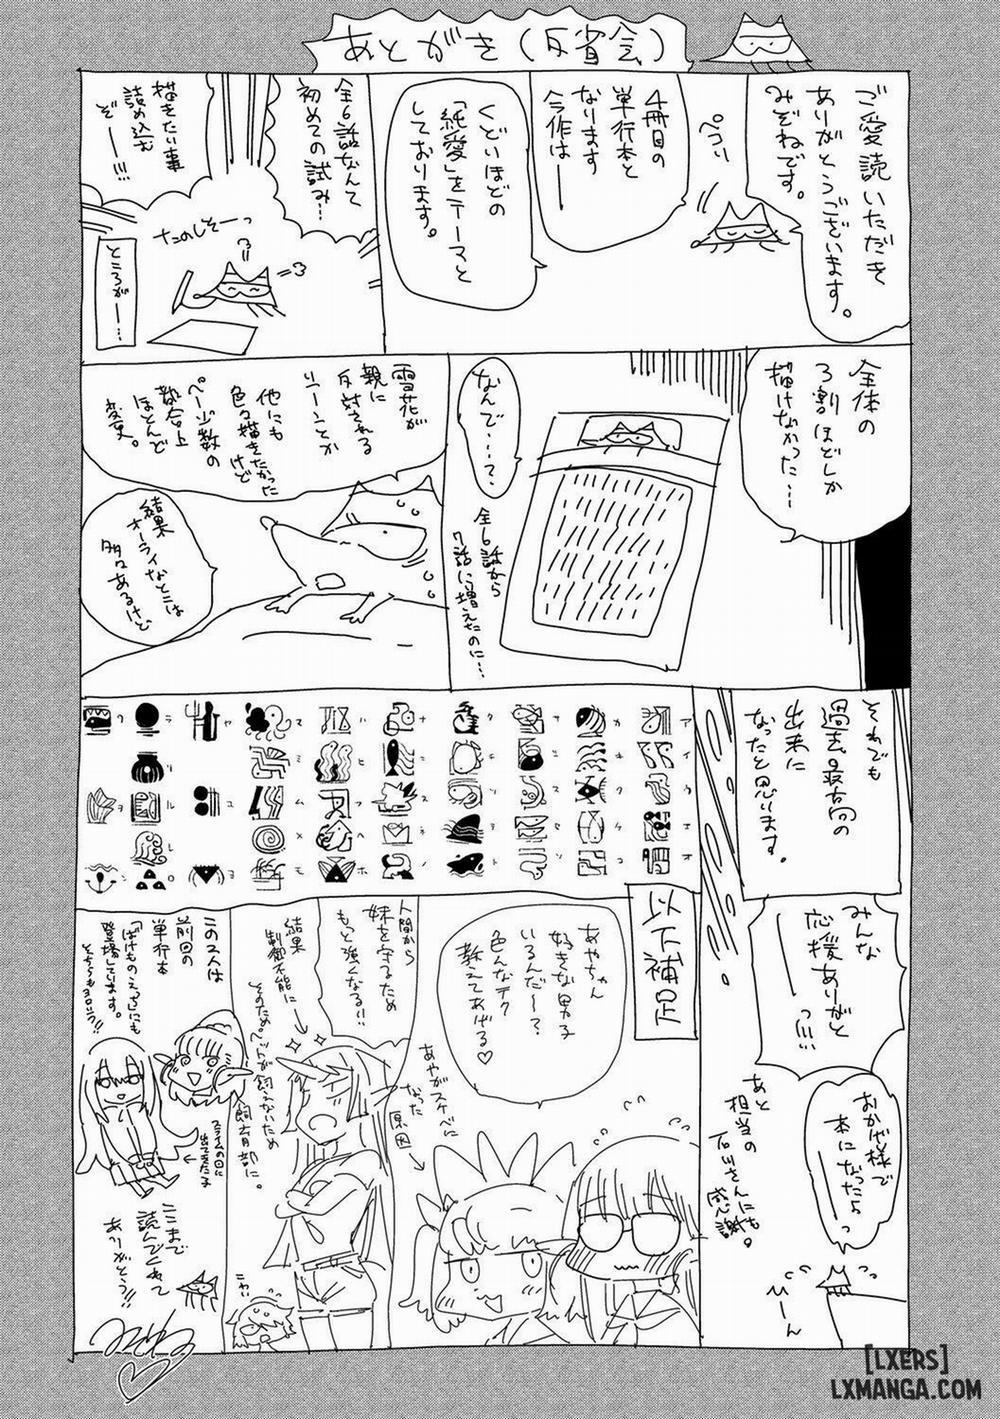 あとがき(反省会)
ご愛読いただき
ありがとうございます。
みぞねです。
ペコリ
4冊目の
単行本と
なります
今作は―
くどいほどの
「純愛」をテーマと
しております。
全6話なんて
初めての試み…
描きたい事
詰め込む
ぞ―!!!
たのしそーっ
ところが―…
全体の
3割ほどしか
描けなかった…
なんで…?
全6話から
7話に増えたのに…
雪花が
親に
反対される
シーンとか
他にも
色々描きたかった
けど
ページ数の
都合上
ほとんど
変更。
結果
オーライなとこは
多々あるけど
それでも
過去最高の
出来に
なったと思います。
みんな
応援あーがと
――っ!!!
おかげ様で
本になったよっ
あと
担当の
石川さんにも
感謝。
ひーん
ア
イ
ウ
エ
オ
カ
キ
ク
ケ
コ
ナ
ハ
ホ
ム
ヤ
ユ
ヨ
ラ
リ
ル
レ
ロ
ワ
ヲ
ン
以下補足
あやちゃん
好きな男子
いるんだ~?
色んなテク
教えてあげる♡
あやがスケベに
なった
原因
人間から
妹を守るため
もっと強くなる!!
結果
制御不能に
そのため、ペットが飼えないため
飼育部に。
この2人は
前回の
単行本
「ばけものえっち」にも
登場しています。
そちらもヨロシク!!
スライムの回に
出てきた子
ここまで
読んでくれて
ありがとう!!
みぞね
[LXERS]
LXMANGA.COM